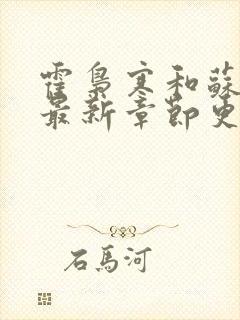 霍梟寒和蘇
最新章節更
石馬河